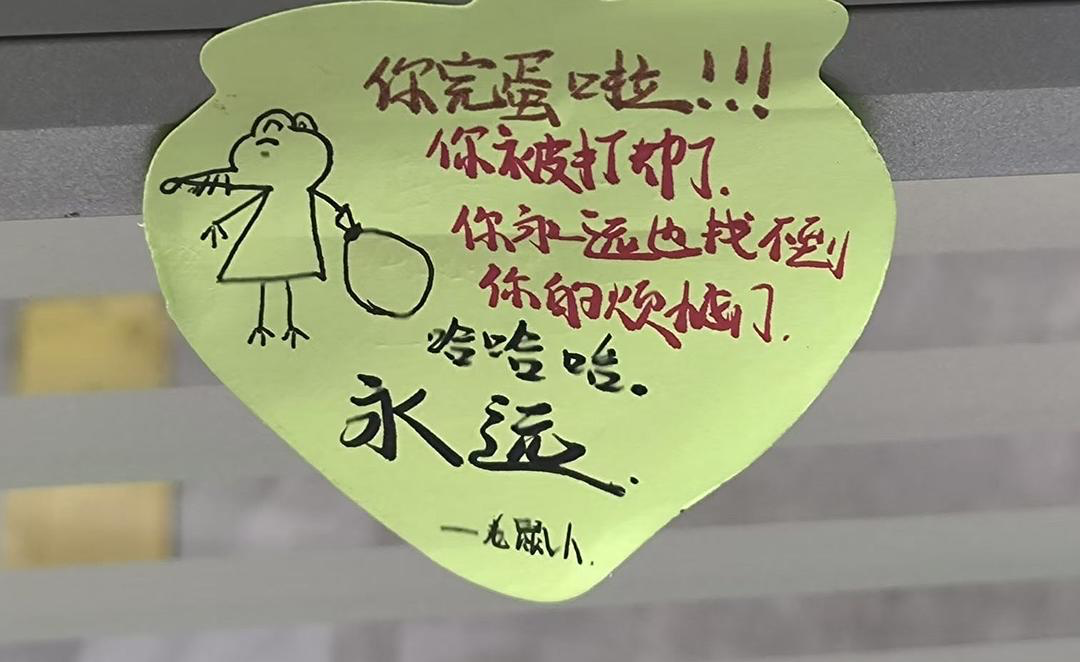 你完蛋啦!!!
你被打劫了.
你永远也找不到
你的烦恼了.
哈哈哈.
永远.
—老鼠人.